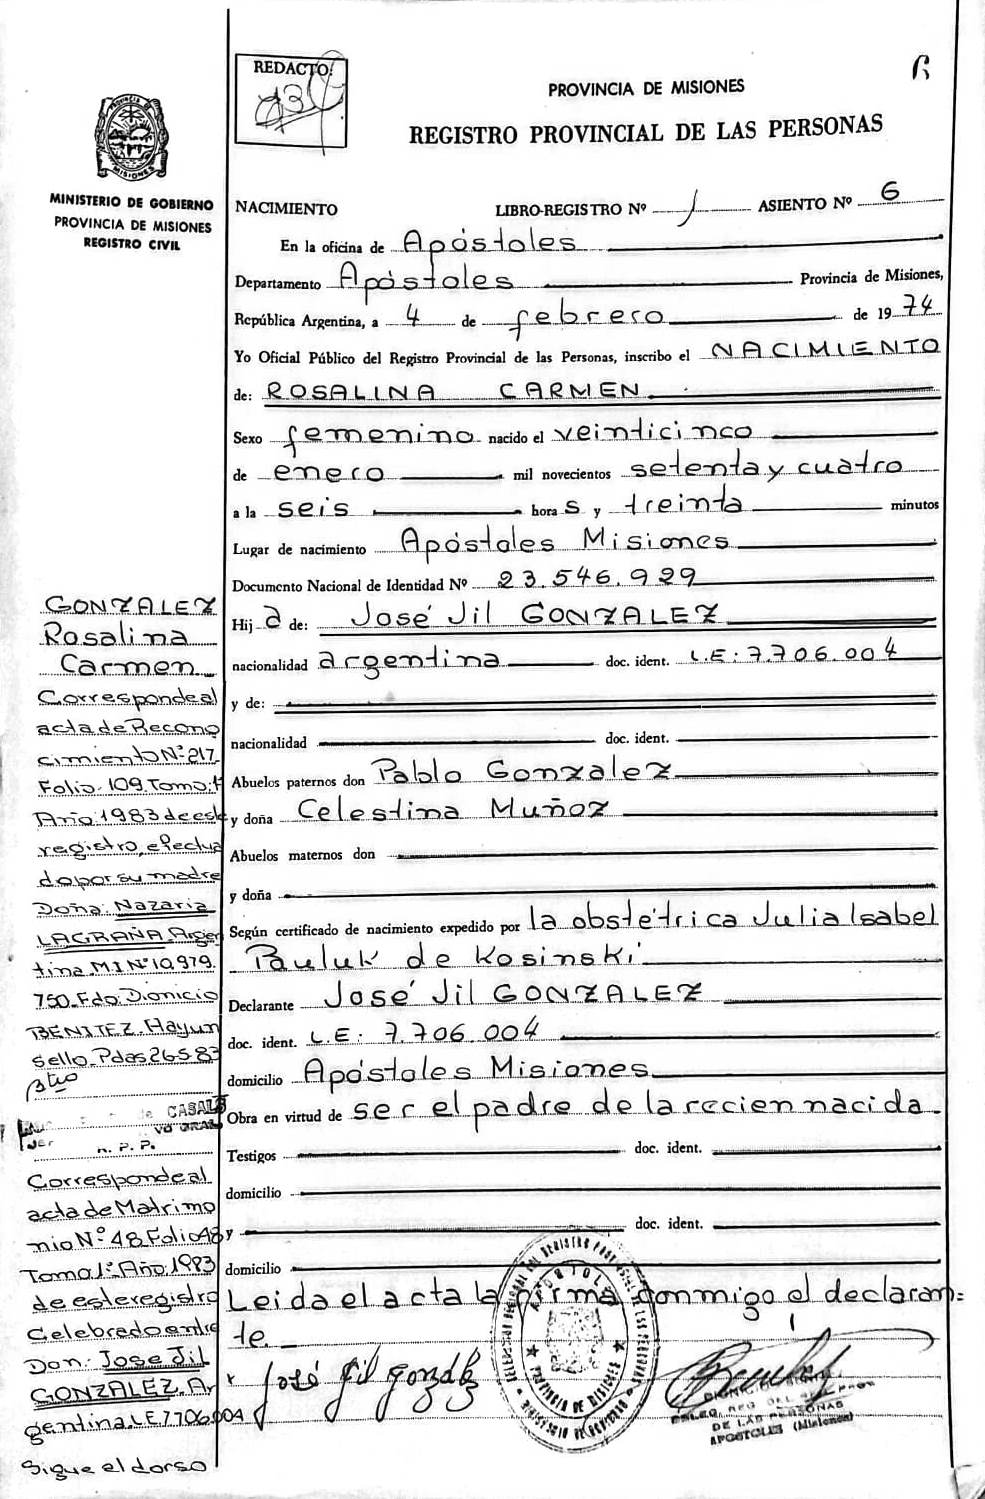 REDACTO:
B
PROVINCIA DE MISIONES
REGISTRO PROVINCIAL DE LAS PERSONAS
MINISTERIO DE GOBIERNO
PROVINCIA DE MISIONES
REGISTRO CIVIL
NACIMIENTO LIBRO-REGISTRO Nº 1 ASIENTO Nº 6
En la oficina de Apóstoles
Departamento Apóstoles Provincia de Misiones,
República Argentina, a 4 de febrero de 1974
Yo Oficial Público del Registro Provincial de las Personas, inscribo el NACIMIENTO
de: ROSALINA CARMEN
Sexo femenino nacido el veinticinco
de enero mil novecientos setenta y cuatro
a la seis hora s y treinta minutos
Lugar de nacimiento Apóstoles Misiones
Documento Nacional de Identidad Nº 23.546.929
Hij a de: José Jil GONZALEZ
nacionalidad argentina doc. ident. L.E: 7.706.004
y de:
nacionalidad doc. ident.
Abuelos paternos don Pablo Gonzalez
y doña Celestina Muñoz
Abuelos maternos don
y doña
Según certificado de nacimiento expedido por la obstétrica Julia Isabel
Pauluk de Kosinski
Declarante José Jil GONZALEZ
doc. ident. L.E: 7.706.004
domicilio Apóstoles Misiones
Obra en virtud de ser el padre de la recien nacida.
Testigos doc. ident.
domicilio
y doc. ident.
domicilio
Leida el acta la firma conmigo el declaran=
te.
José Jil Gonzalez
DE LAS PERSONAS
APOSTOLES (Misiones)
GONZALEZ
Rosalina
Carmen
Corresponde al
acta de Recono
cimiento Nº 217
Folio 109 Tomo: 1
Año 1983 de este
registro, efectua
do por su madre
Doña: Nazaria
LAGRAÑA Argen
tina M.I Nº 10.979.
750. Fdo: Dionicio
BENITEZ. Hay un
sello. Pdas 26.5.83
CASALE
n. P. P.
Corresponde al
acta de Matrimo
nio Nº 48 Folio 48
Tomo 1º Año 1983
de este registro
Celebredo entre
Don: Jose Jil
GONZALEZ. Ar
gentina L.E 7706.004
Sigue el dorso